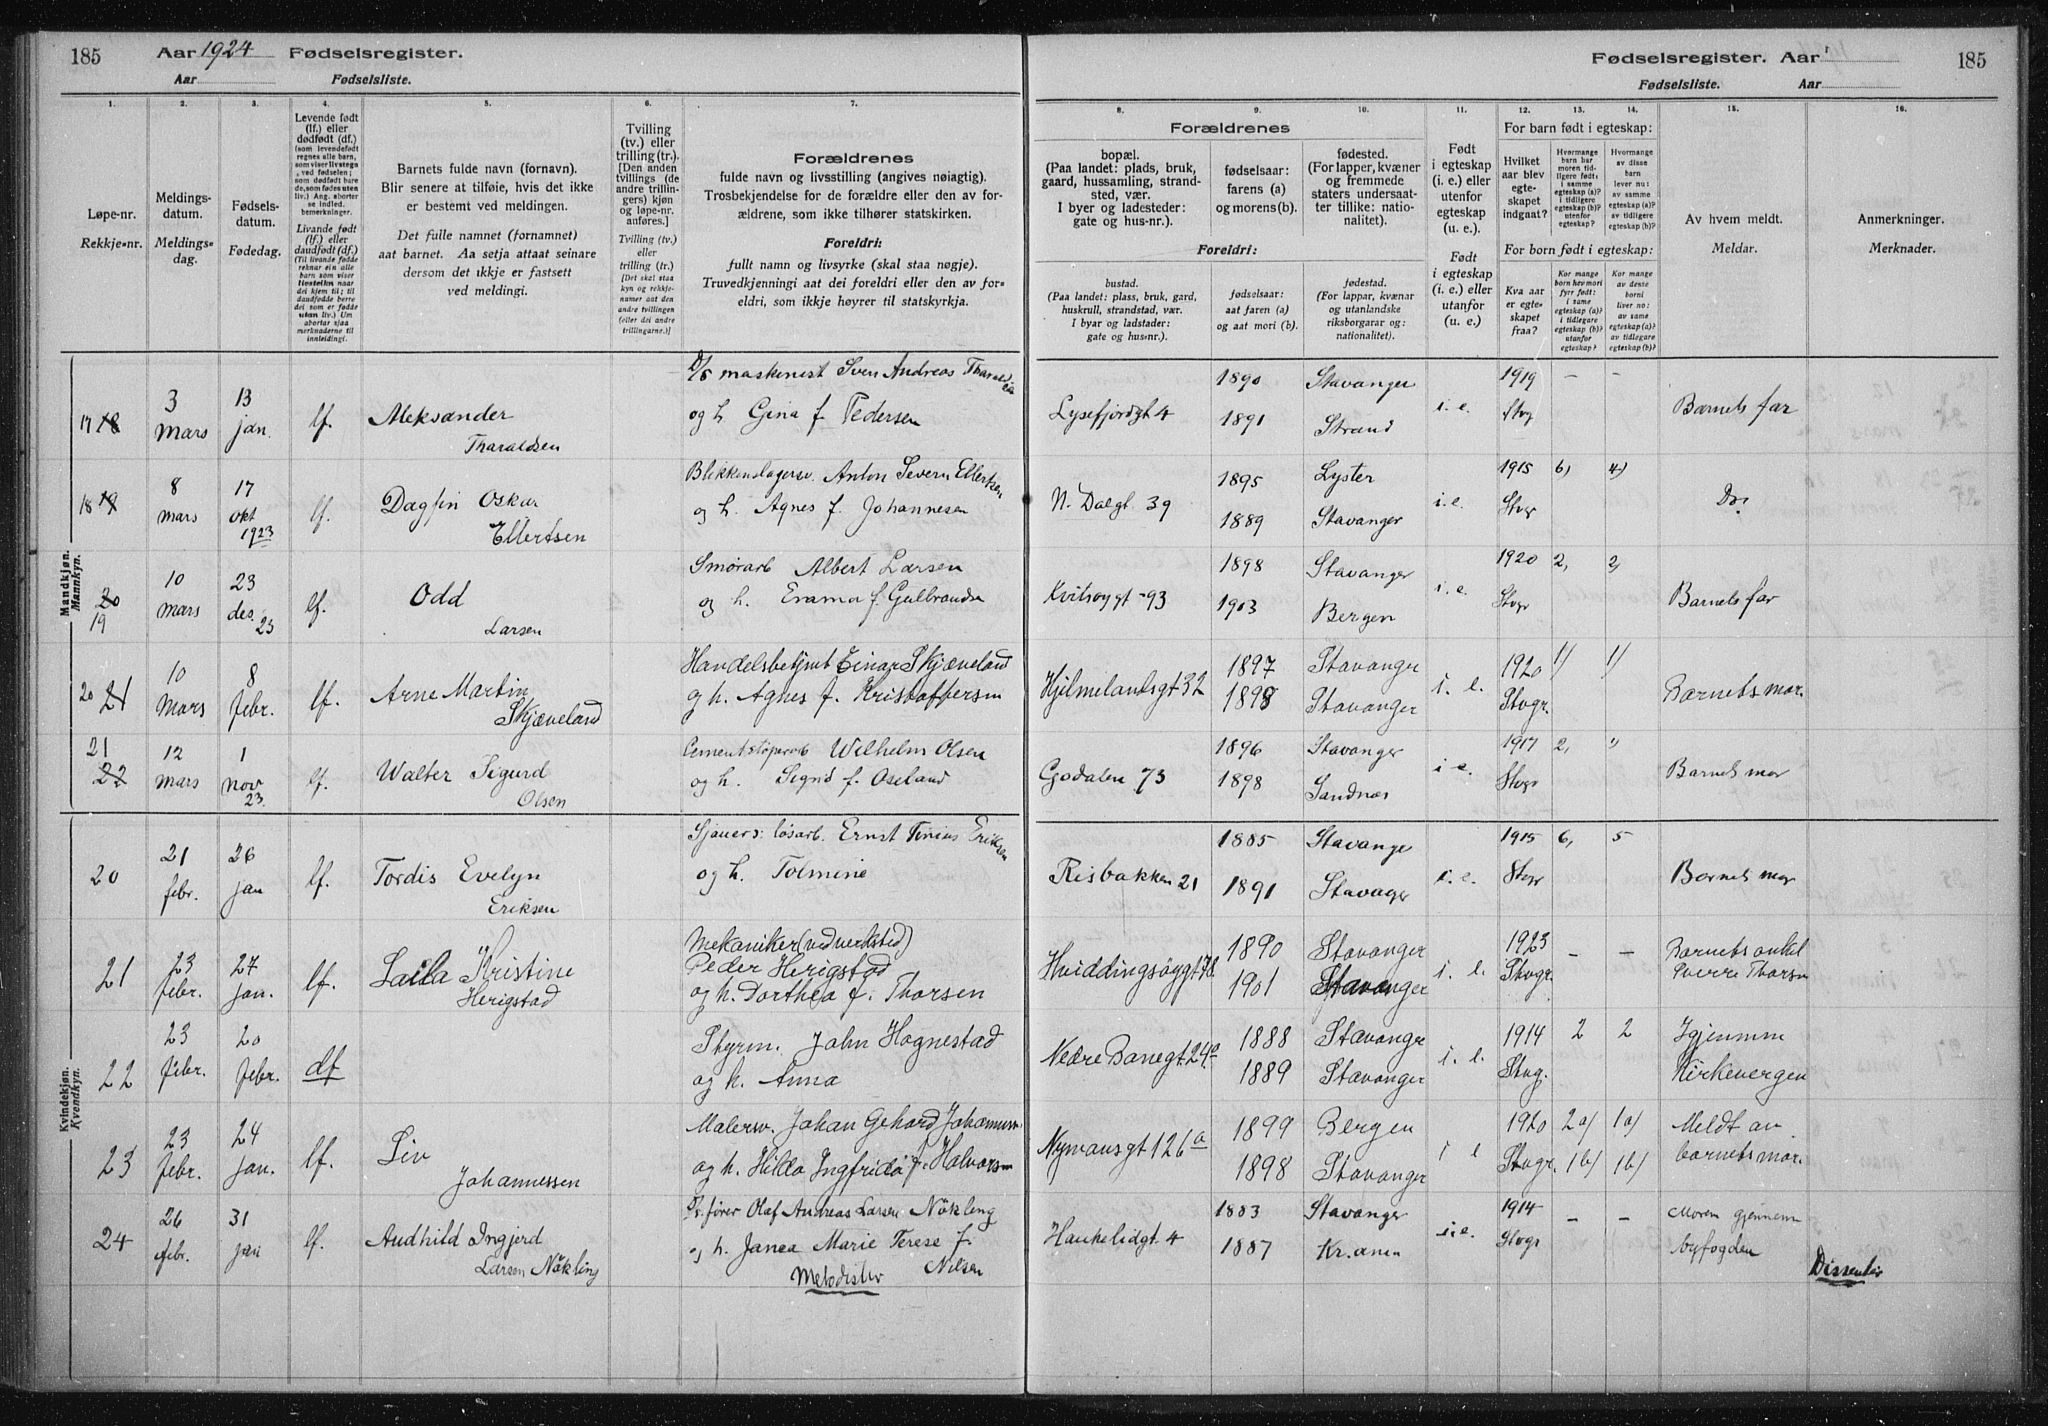 185 Aar 1924 Fødselsregister.
Aar Fødselsliste.
1. 2. 3. 4. 5. 6. 7.
Løpe-nr.
Rekkje-nr.
Meldings-
datum.
Meldings-
dag.
Fødsels-
datum.
Fødedag.
Levende født
(lf.) eller
dødfødt (df.)
(som levendefødt
regnes alle barn,
som viser livstegn
ved fødselen;
som dødfødt bare
de, som fødes uten
liv.) Ang. aborter
se indled.
bemerkninger.
Livande født
(lf.) eller
daudfødt (df.)
(Til livande fødde
reknar ein alle
barn som viser
livsteikn naar
dei kjem til; til
daudfødde berre
dei som er fødde
utan liv.) Um
abortar sjaa
merknaderne til
innleidingi.
Barnets fulde navn (fornavn).
Blir senere at tilføie, hvis det ikke
er bestemt ved meldingen.
Det fulle namnet (fornamnet)
aat barnet. Aa setja attaat seinare
dersom det ikkje er fastsett
ved meldingi.
Tvilling
(tv.) eller
trilling (tr.).
[Den anden
tvillings (de
andre trillin-
gers) kjøn
og løpe-nr.
anføres.]
Tvilling (tv.)
eller
trilling (tr.)
[Det skal staa
kyn og rekkje-
numer aat den
andre tvillingen
(eller dei andre
trillingarne.)]
Forældrenes
fulde navn og livsstilling (angives nøiagtig).
Trosbekjendelse for de forældre eller den av for-
ældrene, som ikke tilhører statskirken.
Foreldri:
fullt namn og livsyrke (skal staa nøgje).
Truvedkjenningi aat dei foreldri eller den av for-
eldri, som ikkje høyrer til statskyrkja.
Mandkjøn.
Mannkyn.
17 18 3 mars 13 jan. lf. Aleksander
Tharaldsen
D/S maskinist Sven Andreas Tharaldsen
og h. Gina f. Pedersen
18 19 8 mars 17 okt 1923 lf. Dagfin Oskar
Ellertsen
Blikkenslagersv. Anton Severin Ellertsen
og h. Agnes f. Johannesen
20 19 10 mars 23 des. 23 lf. Odd
Larsen
Smørarb Albert Larsen
og h. Emma f. Gulbrandsen
20 21 10 Mars 8 febr. lf. Arne Martin
Skjæveland
Handelsbetjent Einar Skjæveland
og h. Agnes f. Kristoffersen
21 22 12 mars 1 nov 23. lf. Walter Sigurd
Olsen
Cementstøperarb Wilhelm Olsen
og h. Signe f. Oseland
Kvindekjøn.
Kvendkyn.
20 21 febr. 26 jan lf. Tordis Evelyn
Eriksen
Sjauers: løsarb. Ernst Tinius Eriksen
og h. Tolmine
21 23 febr. 27 jan. lf. Laila Kristine
Herigstad
Mekaniker (ved verksted)
Peder Herigstad
og h. Dorthea f. Thorsen
22 23 febr. 20 febr. df
Styrm. John Hognestad
og h. Anna
23 23 febr. 24 jan. lf. Liv
Johannessen
Malersv. Johan Gehard Johannessen
og h. Hilda Ingfrida f. Halvorsen
24 26 febr. 31 jan lf. Audhild Ingjerd
Larsen Nökling
fører Olaf Andreas Larsen Nökling
og h. Janea Marie Terese f.
Nilsen
Metodister
Fødselsregister. Aar 185
Fødselsliste. Aar
8. 9. 10. 11. 12. 13. 14. 15. 16.
Forældrenes
bopæl.
(Paa landet: plads, bruk,
gaard, hussamling, strand-
sted, vær.
I byer og ladesteder:
gate og hus-nr.).
fødselsaar:
farens (a)
og morens (b).
fødested.
(For lapper, kvæner
og fremmede
staters undersaat-
ter tillike: natio-
nalitet).
Foreldri:
bustad.
(Paa landet: plass, bruk, gard,
huskrull, strandstad, vær.
I byar og ladstader:
gate og hus-nr.).
fødselsaar:
aat faren (a)
og aat mori (b).
fødestad.
(For lappar, kvænar
og utanlandske
riksborgarar og:
nationalitet).
Født
i egteskap
(i. e.) eller
utenfor
egteskap
(u. e.).
Født
i egteskap
(i. e.) eller
utanfor
(u. e.).
For barn født i egteskap:
Hvilket
aar blev
egte-
skapet
indgaat?
Hvormange
barn har
moren tid-
ligere født:
i samme
egteskap (a)?
i tidligere
egteskap (b)?
utenfor
egteskap?
Hvormange
av disse
barn
lever nu:
av samme
egteskap (a)?
av tidligere
egteskap (b)?
For born født i egteskap:
Kva aar
er egte-
skapet
fraa?
Kor mange
born hev mori
fyrr født:
i same
egteskap (a)?
i tidlegare
egteskap (b)?
utanfor
egteskap?
Kor mange
av desse
borni
liver no:
av same
egteskap (a)?
av tidlegare
egteskap (b)?
Av hvem meldt.
Meldar.
Anmerkninger.
Merknader.
Lysefjordgt 4 1890 Stavanger i. e. 1919 – – Barnets far
1891 Strand Stvgr
N. Dalgt 39 1895 Lyster i. e. 1915 6, 4,) Do
1889 Stavanger Stvgr
Kvitsøygt 93 1898 Stavanger i. e. 1920 2, 2, Barnets far
1903 Bergen Stvgr
Hjelmelandsgt 32 1897 Stavanger i. e. 1920 1/ 1/ Barnets mor.
1898 Stavanger Stvgr.
Godalen 73 1896 Stavanger i e. 1917 2, " Barnets mor
1898 Sandnæs Stvgr
Risbakken 21 1885 Stavange i. e. 1915 6, 5 Barnets mor
1891 Stavager Stvgr
Hviddingsøygt 78 1890 Stavanger i. e. 1923 – – Barnets onkel
1901 Stavanger Stvgr. Sverre Thorsen
Nedre Banegt. 24a 1888 Stavanger i. e. 1914 2 2 Igjennem
1889 Stavanger Stvg. Kirkevergen
Nymansgt 126a 1899 Bergen i e 1920 2a/ 1a/ Meldt av
1898 Stavanger Stvgr. 1b/ 1b/ barnets mor.
Haukelidgt. 4 1883 Stavanger i.e. 1914 – – Moren gjennem
1887 Kr.ania Stvgr byfogden
Dissenter